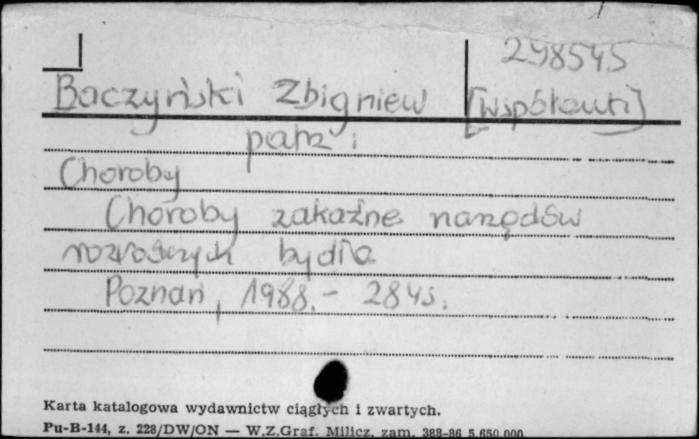 298545
Baczyński Zbigniew [współaut.]
patrz:
Choroby
Choroby zakaźne narządów
rozrodczych bydła
Poznań, 1988. - 284s.
Karta katalogowa wydawnictw ciągłych i zwartych.
Pu-B-144, z. 228/DW/ON — W.Z.Graf. Milicz, zam. 388-86 5.650.000